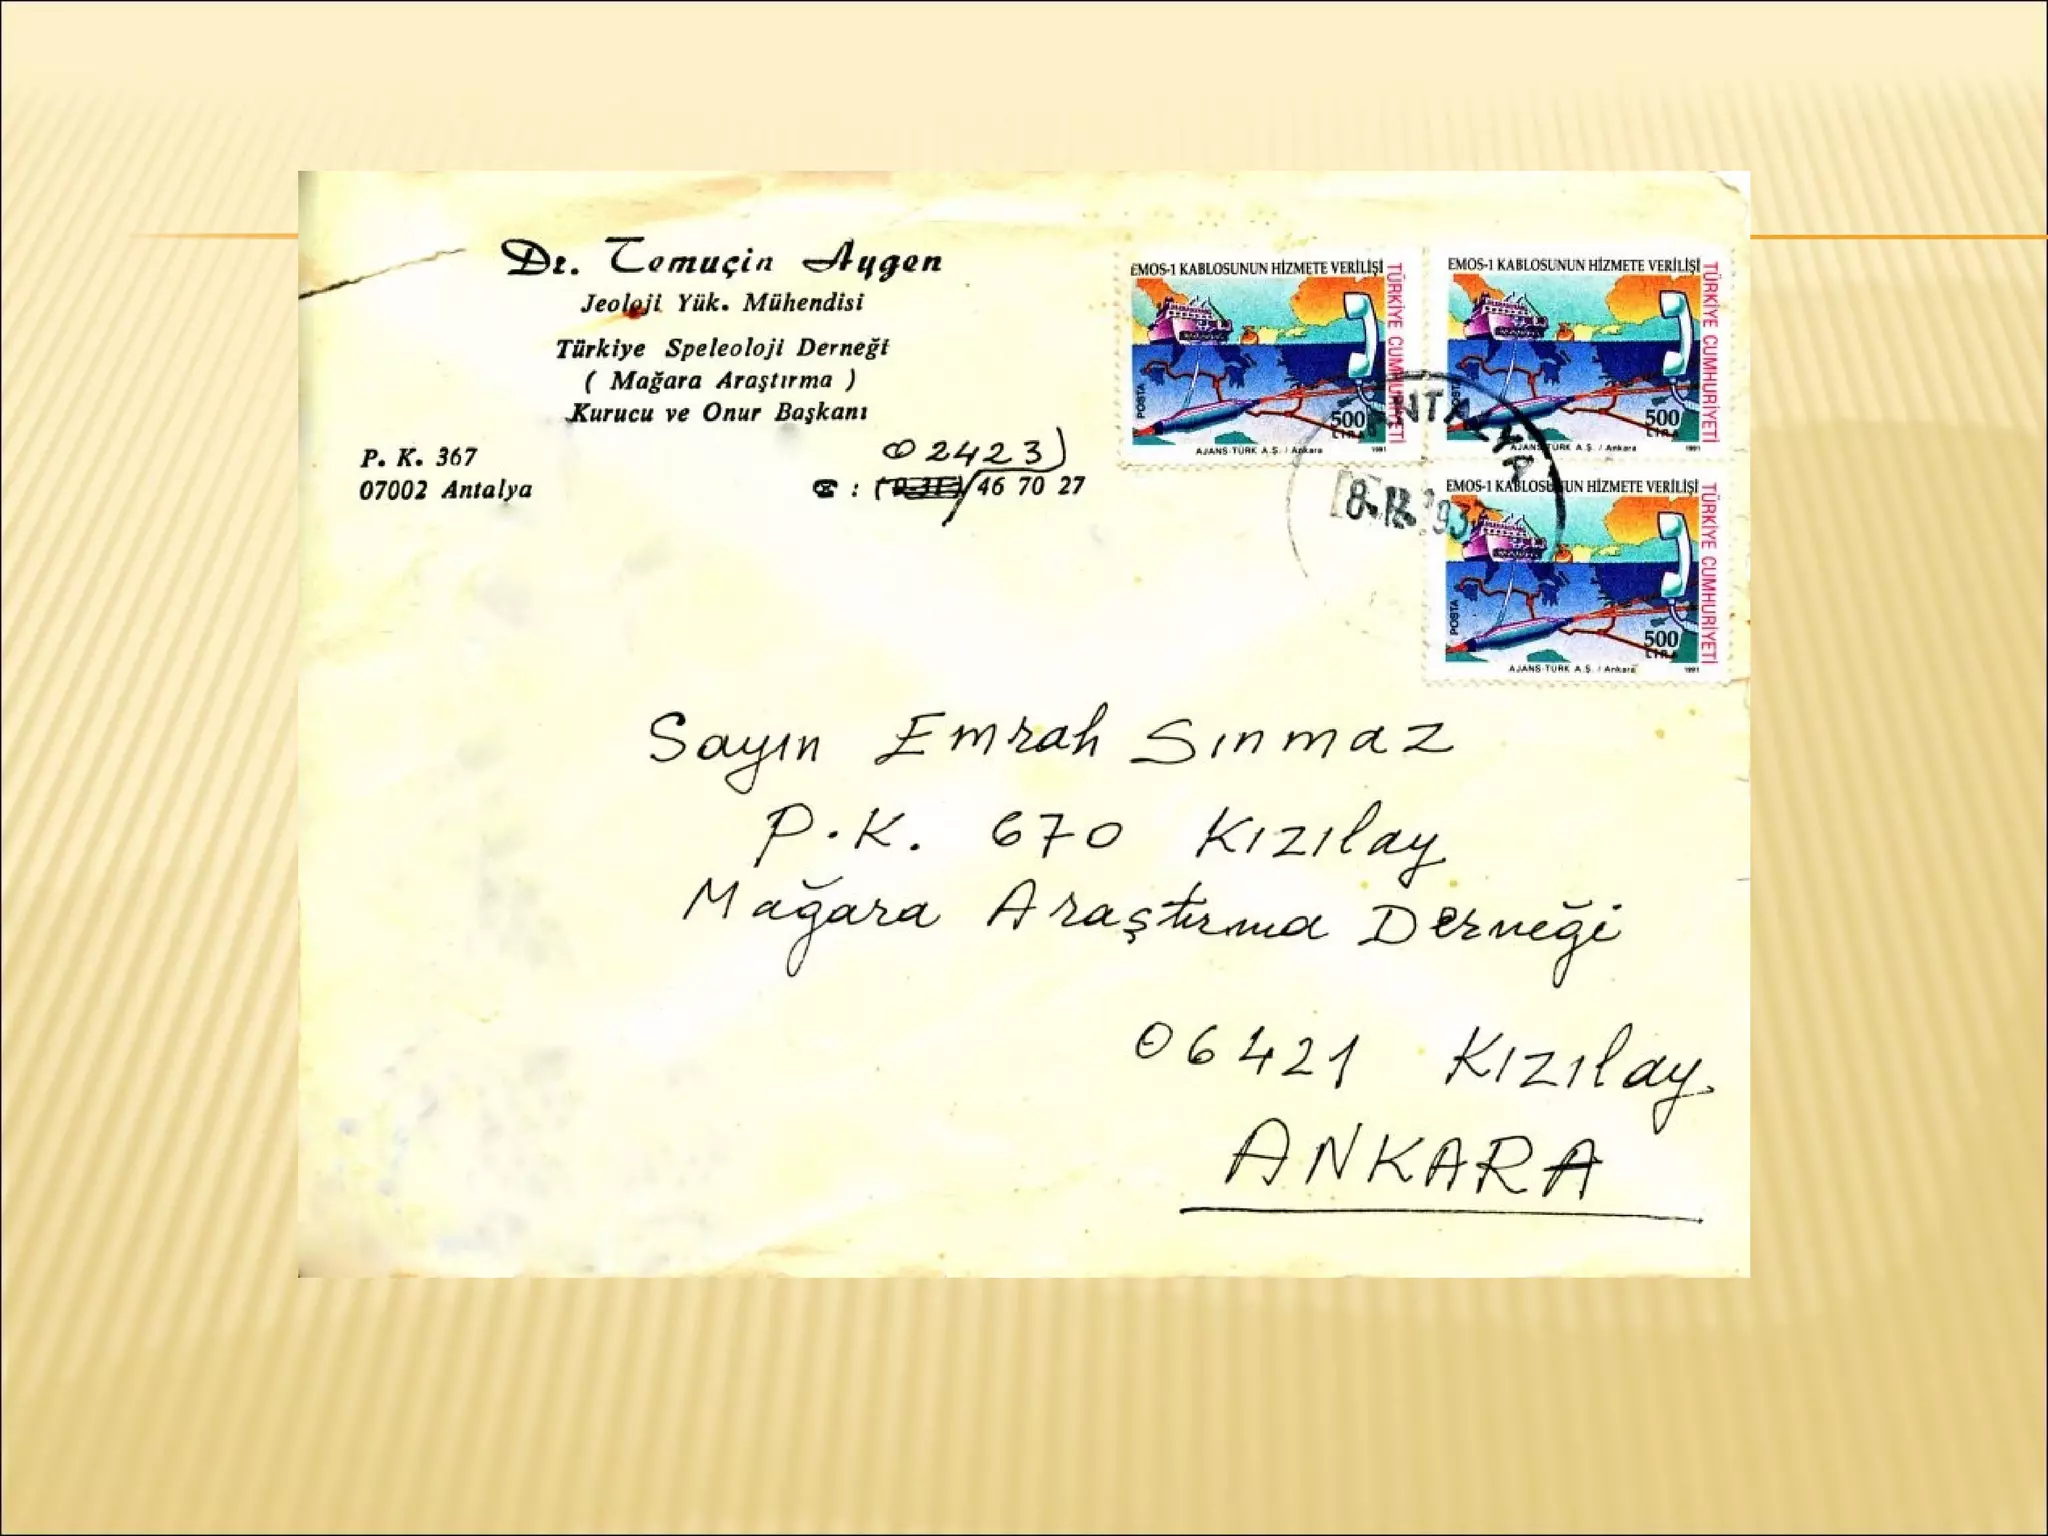 Dr. Temuçin Aygen
Jeoloji Yük. Mühendisi
Türkiye Speleoloji Derneği
( Mağara Araştırma )
Kurucu ve Onur Başkanı
P. K. 367
07002 Antalya
02423)
☎ : 46 70 27
EMOS-1 KABLOSUNUN HİZMETE VERİLİŞİ
TÜRKİYE CUMHURİYETİ
POSTA
500
LİRA
AJANS-TÜRK A.Ş. / Ankara 1991
EMOS-1 KABLOSUNUN HİZMETE VERİLİŞİ
TÜRKİYE CUMHURİYETİ
500
LİRA
AJANS-TÜRK A.Ş. / Ankara 1991
ANTALYA
EMOS-1 KABLOSUNUN HİZMETE VERİLİŞİ
TÜRKİYE CUMHURİYETİ
POSTA
500
LİRA
AJANS-TÜRK A.Ş. / Ankara 1991
Sayın Emrah Sınmaz
P.K. 670 Kızılay
Mağara Araştırma Derneği
06421 Kızılay
ANKARA